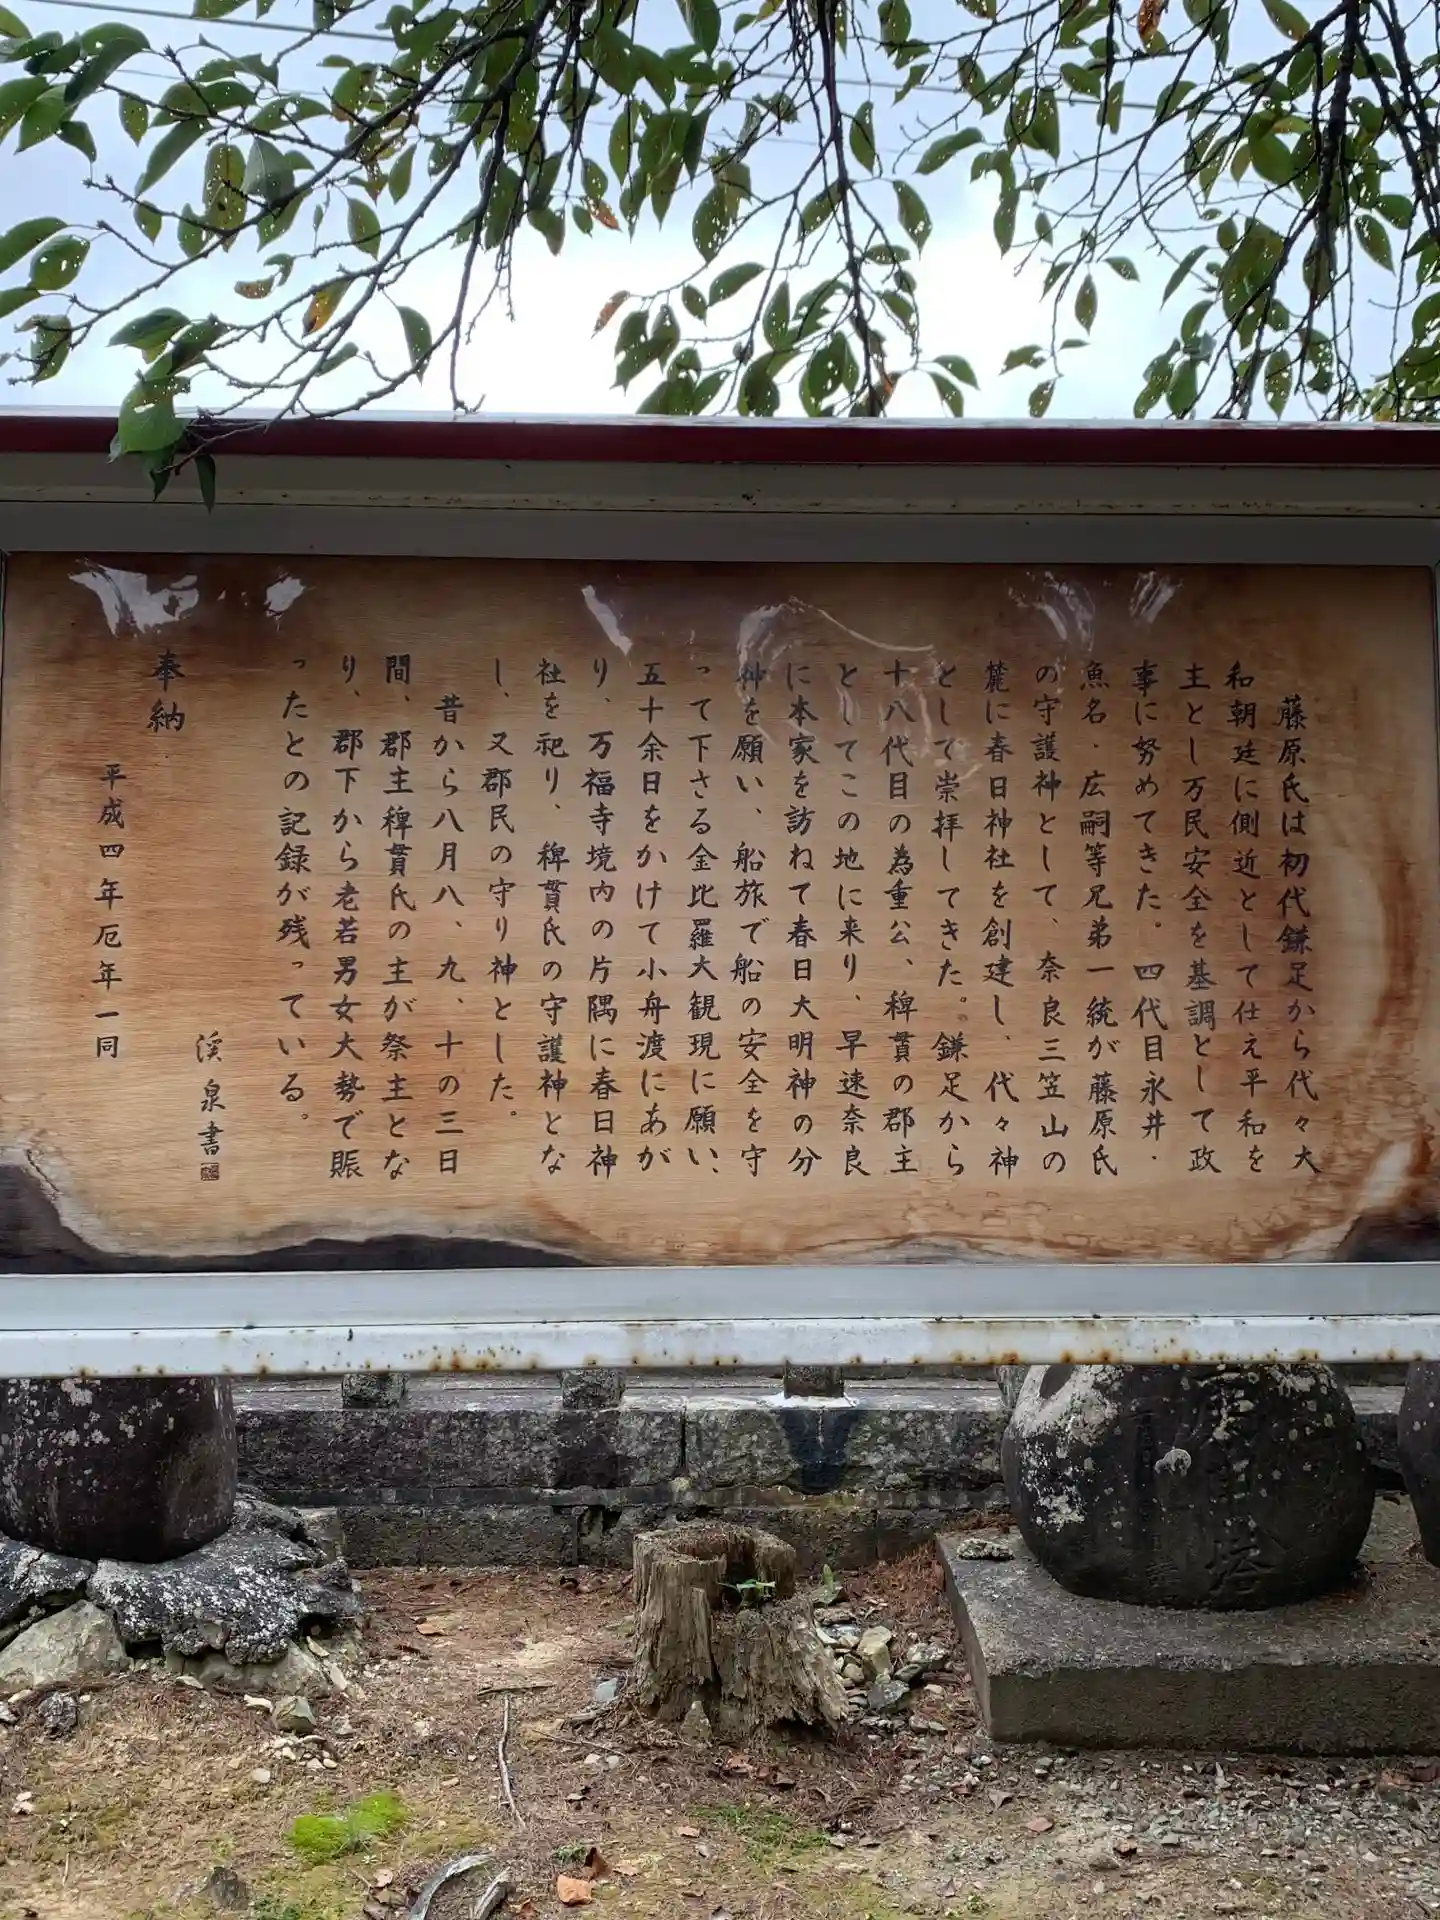 藤原氏は初代鎌足から代々大
和朝廷に側近として仕え平和を
主とし万民安全を基調として政
事に努めてきた。四代目永井・
魚名・広嗣等兄弟一統が藤原氏
の守護神として、奈良三笠山の
麓に春日神社を創建し、代々神
として崇拝してきた。鎌足から
十八代目の為重公、稗貫の郡主
としてこの地に来り、早速奈良
に本家を訪ねて春日大明神の分
神を願い、船旅で船の安全を守
って下さる金比羅大観現に願い、
五十余日をかけて小舟渡にあが
り、万福寺境内の片隅に春日神
社を祀り、稗貫氏の守護神とな
し、又郡民の守り神とした。
昔から八月八、九、十の三日
間、郡主稗貫氏の主が祭主とな
り、郡下から老若男女大勢で賑
ったとの記録が残っている。
渓泉書
奉納
平成四年厄年一同
塔